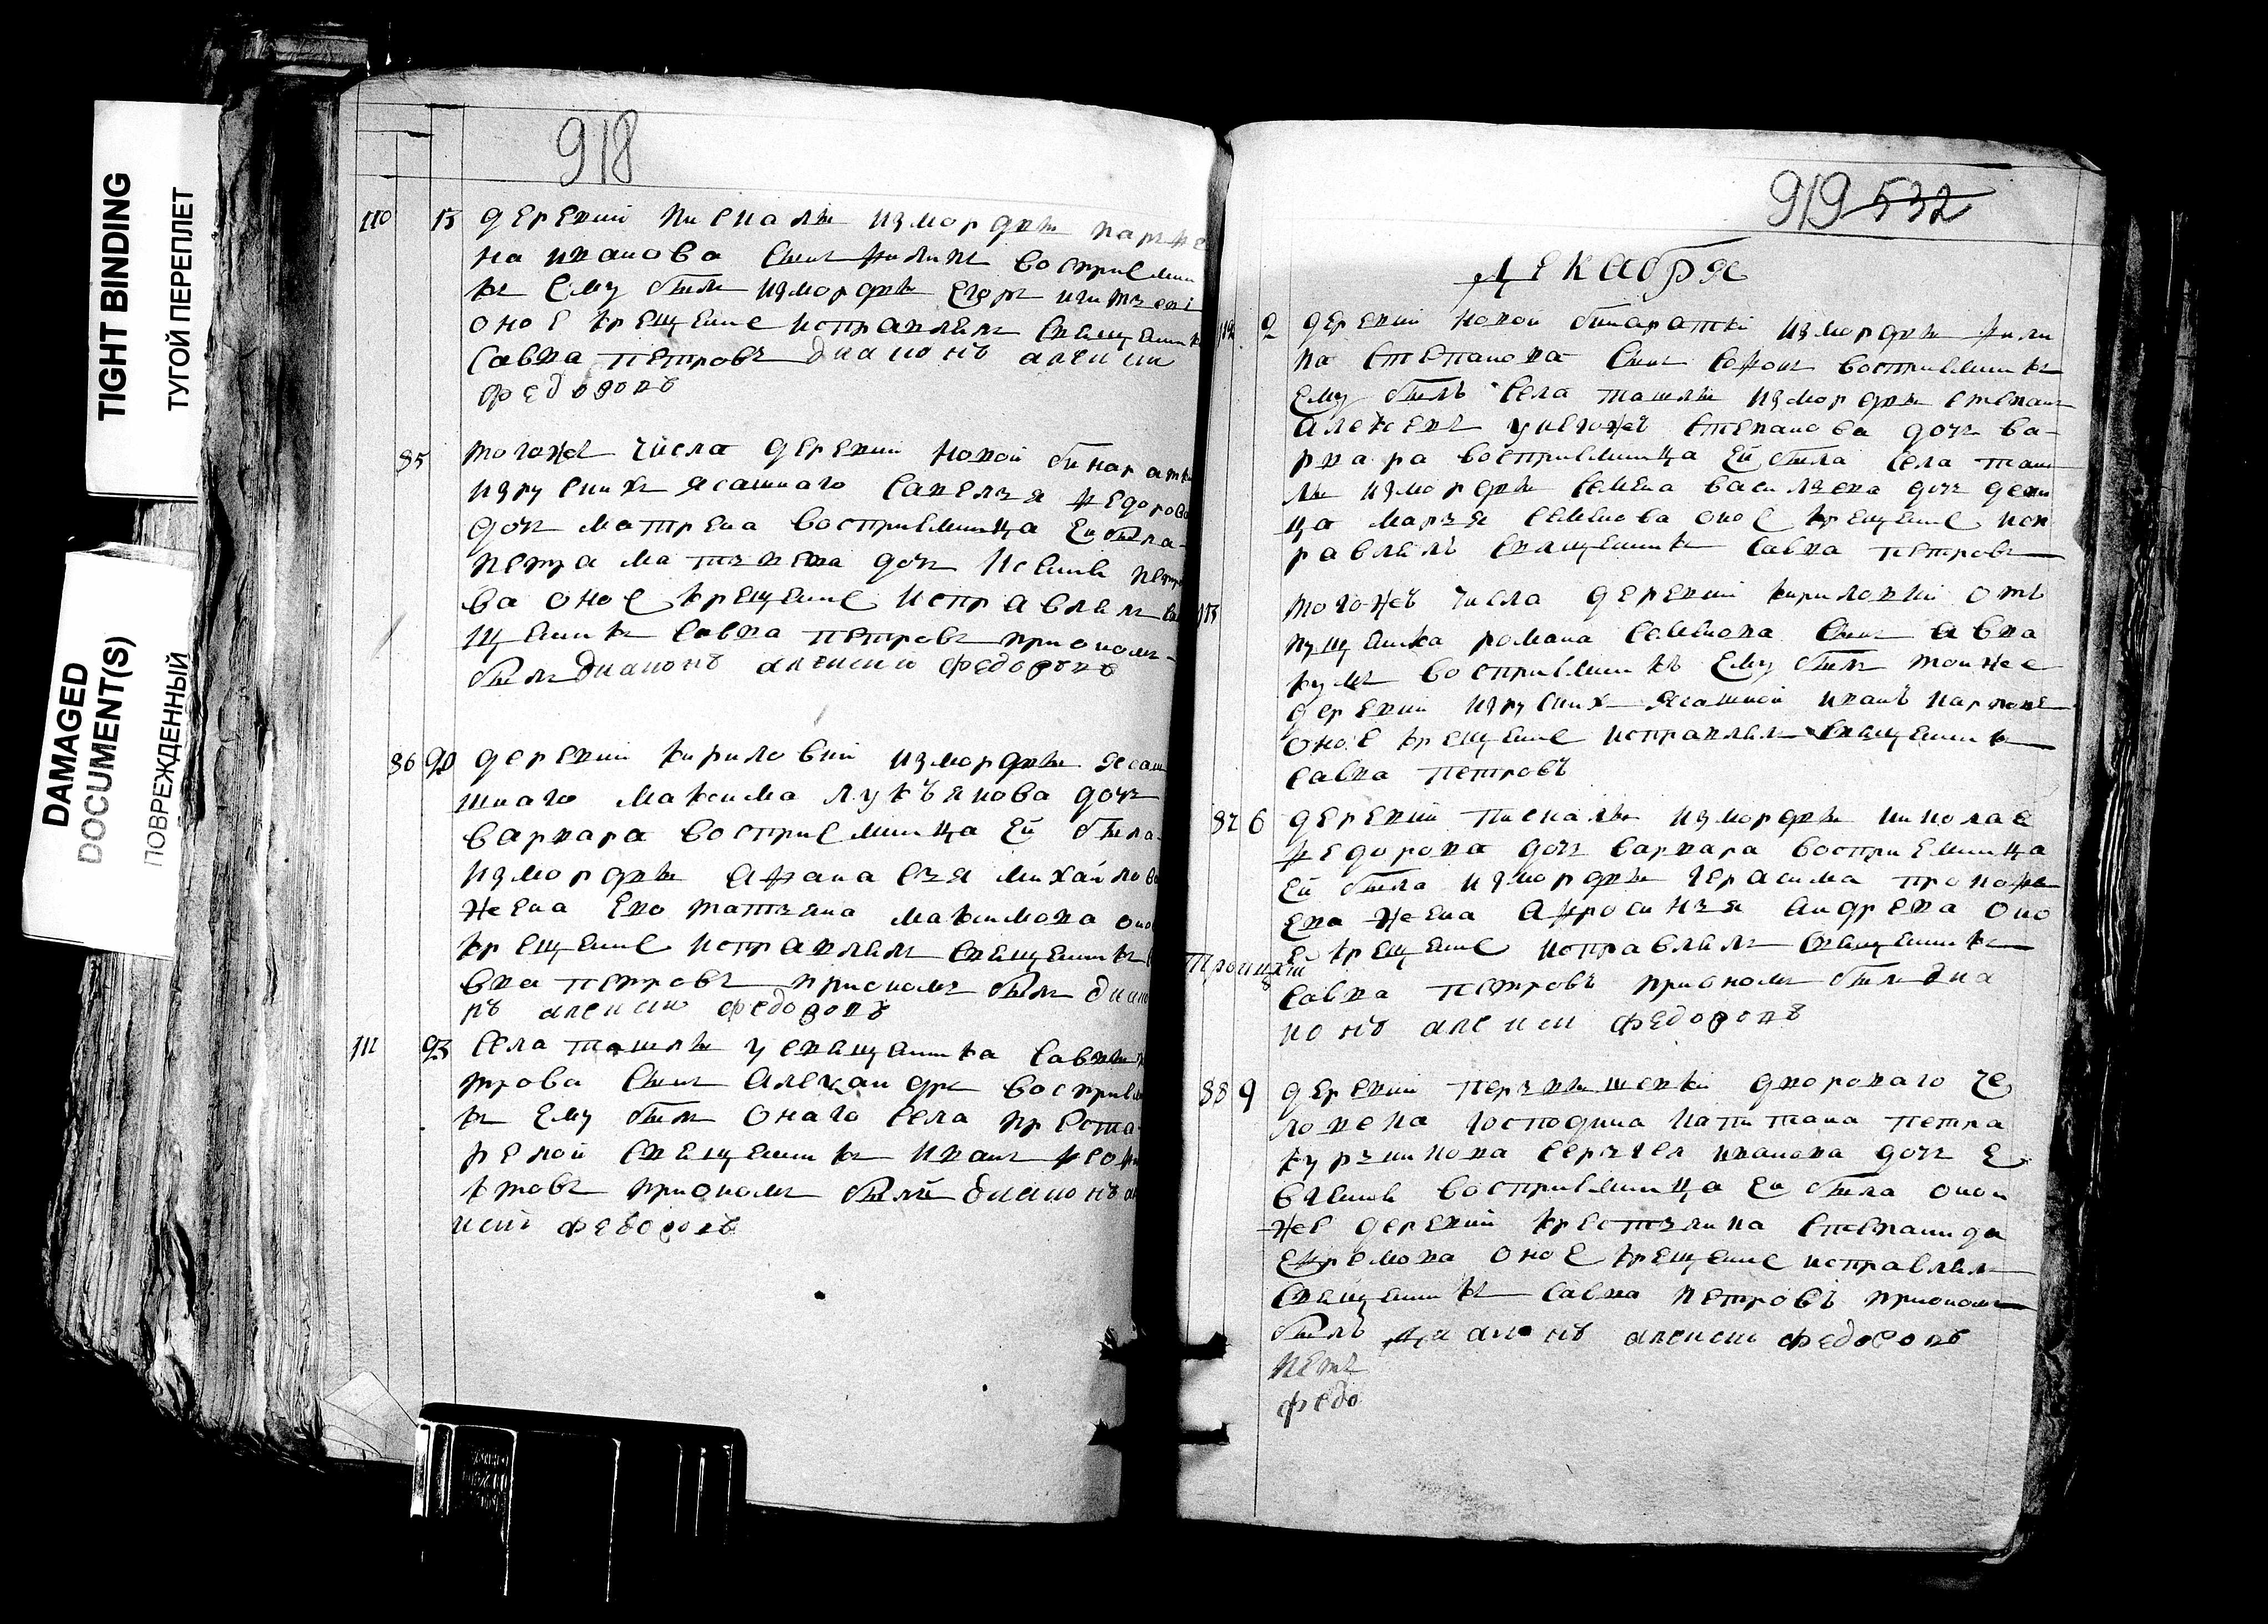 TIGHT BINDING
ТУГОЙ ПЕРЕПЛЕТ
DAMAGED
DOCUMENT(S)
ПОВРЕЖДЕННЫЙ
918
110 13 деревни из мордвы
на иванова сынъ филипъ восприемни
къ ему былъ из мордвы егоръ
оное крещение исправлялъ священникъ
савва петровъ диаконъ алексѣи
федоровъ
85 тогожъ числа деревни новой бинаратки
из руских ясашнаго савелья федорова
дочь матрена восприемница еи была
петра матвѣева дочь ксения петро
ва оное крещение исправлялъ свя
щенникъ савва петровъ при ономъ
былъ диаконъ алексии федоровъ
86 20 деревни кириловки из мордвы ясаш
шнаго максима лукъянова дочь
варвара восприемница ей была
из мордвы афанасья михайлова
жена ево татьяна максимова оно
крещение исправлялъ священникъ са
вва петровъ при ономъ былъ диако
нъ алексии федоровъ
111 23 села ташлы у священника саввы пе
трова сынъ александръ восприем
къ ему былъ онаго села преста
релой священникъ иванъ феофи
ктовъ при ономъ былъ диаконъ ал
ксии федоровъ
919 532
декабря
112 2 деревни новой бинаратки из мордвы фили
па степанова сынъ софонъ восприемникъ
ему былъ села ташлы из мордвы степанъ
алексеевъ у негожъ степанова дочь ва-
рвара восприемница ей была села таш
лы из мордвы семена васильева дочь деви
ца марья семенова оное крещение исп
равлялъ священникъ савва петровъ
113 тогожъ числа деревни кириловки отъ
пущеника романа семенова сынъ авва
кумъ восприемникъ ему былъ тоижe
деревни из руских ясашной иванъ
оное крещение исправлялъ священникъ
савва петровъ
87 6 деревни из мордвы николаe
федорова дочь варвара восприемница
ей была из мордвы герасима прокофь
ева жена афросинья андрева оно
е крещение исправлялъ священникъ
савва петровъ при ономъ былъ диа
конъ алексии федоровъ
88 9 деревни дворовaго че
ловека господина капитана петра
сергѣя иванова дочь е
вгения восприемница еи была онои
же деревни крестьянка степанида
ефремова оное крещение исправлялъ
священникъ савва петровъ при ономъ
былъ диаконъ алексии федоровъ
петъ
федо